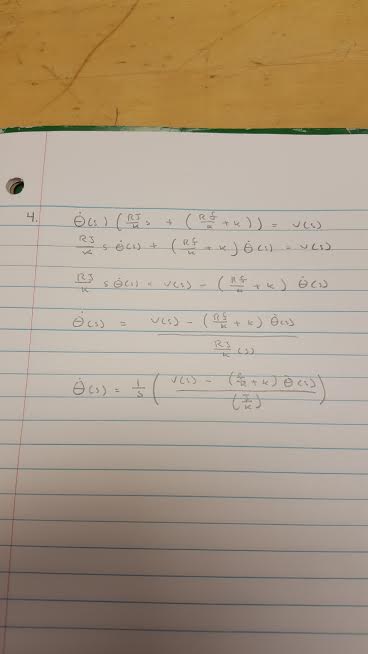 4. Θ̇(s) (RJ/K s + (Rf/K + K)) = V(s)
RJ/K s Θ̇(s) + (Rf/K + K) Θ̇(s) = V(s)
RJ/K s Θ̇(s) = V(s) - (Rf/K + K) Θ̇(s)
Θ̇(s) = V(s) - (Rf/K + K) Θ̇(s) / RJ/K (s)
Θ̇(s) = 1/s ( V(s) - (/K + K) Θ̇(s) / (/K) )